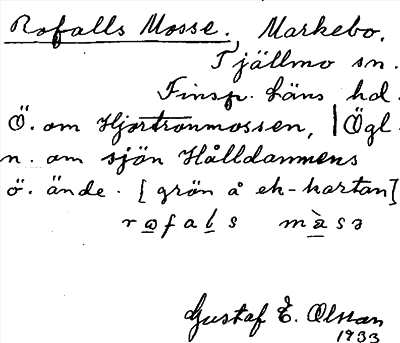 Rofalls Mosse. Markebo.
Tjällmo sn.
Finsp. läns hd.
Ö. om Hjortronmossen, | Ögl.
n. om sjön Hålldammens
ö. ände. [grön å ek-kartan]
rofals màsə
Gustaf E. Olsson
1933